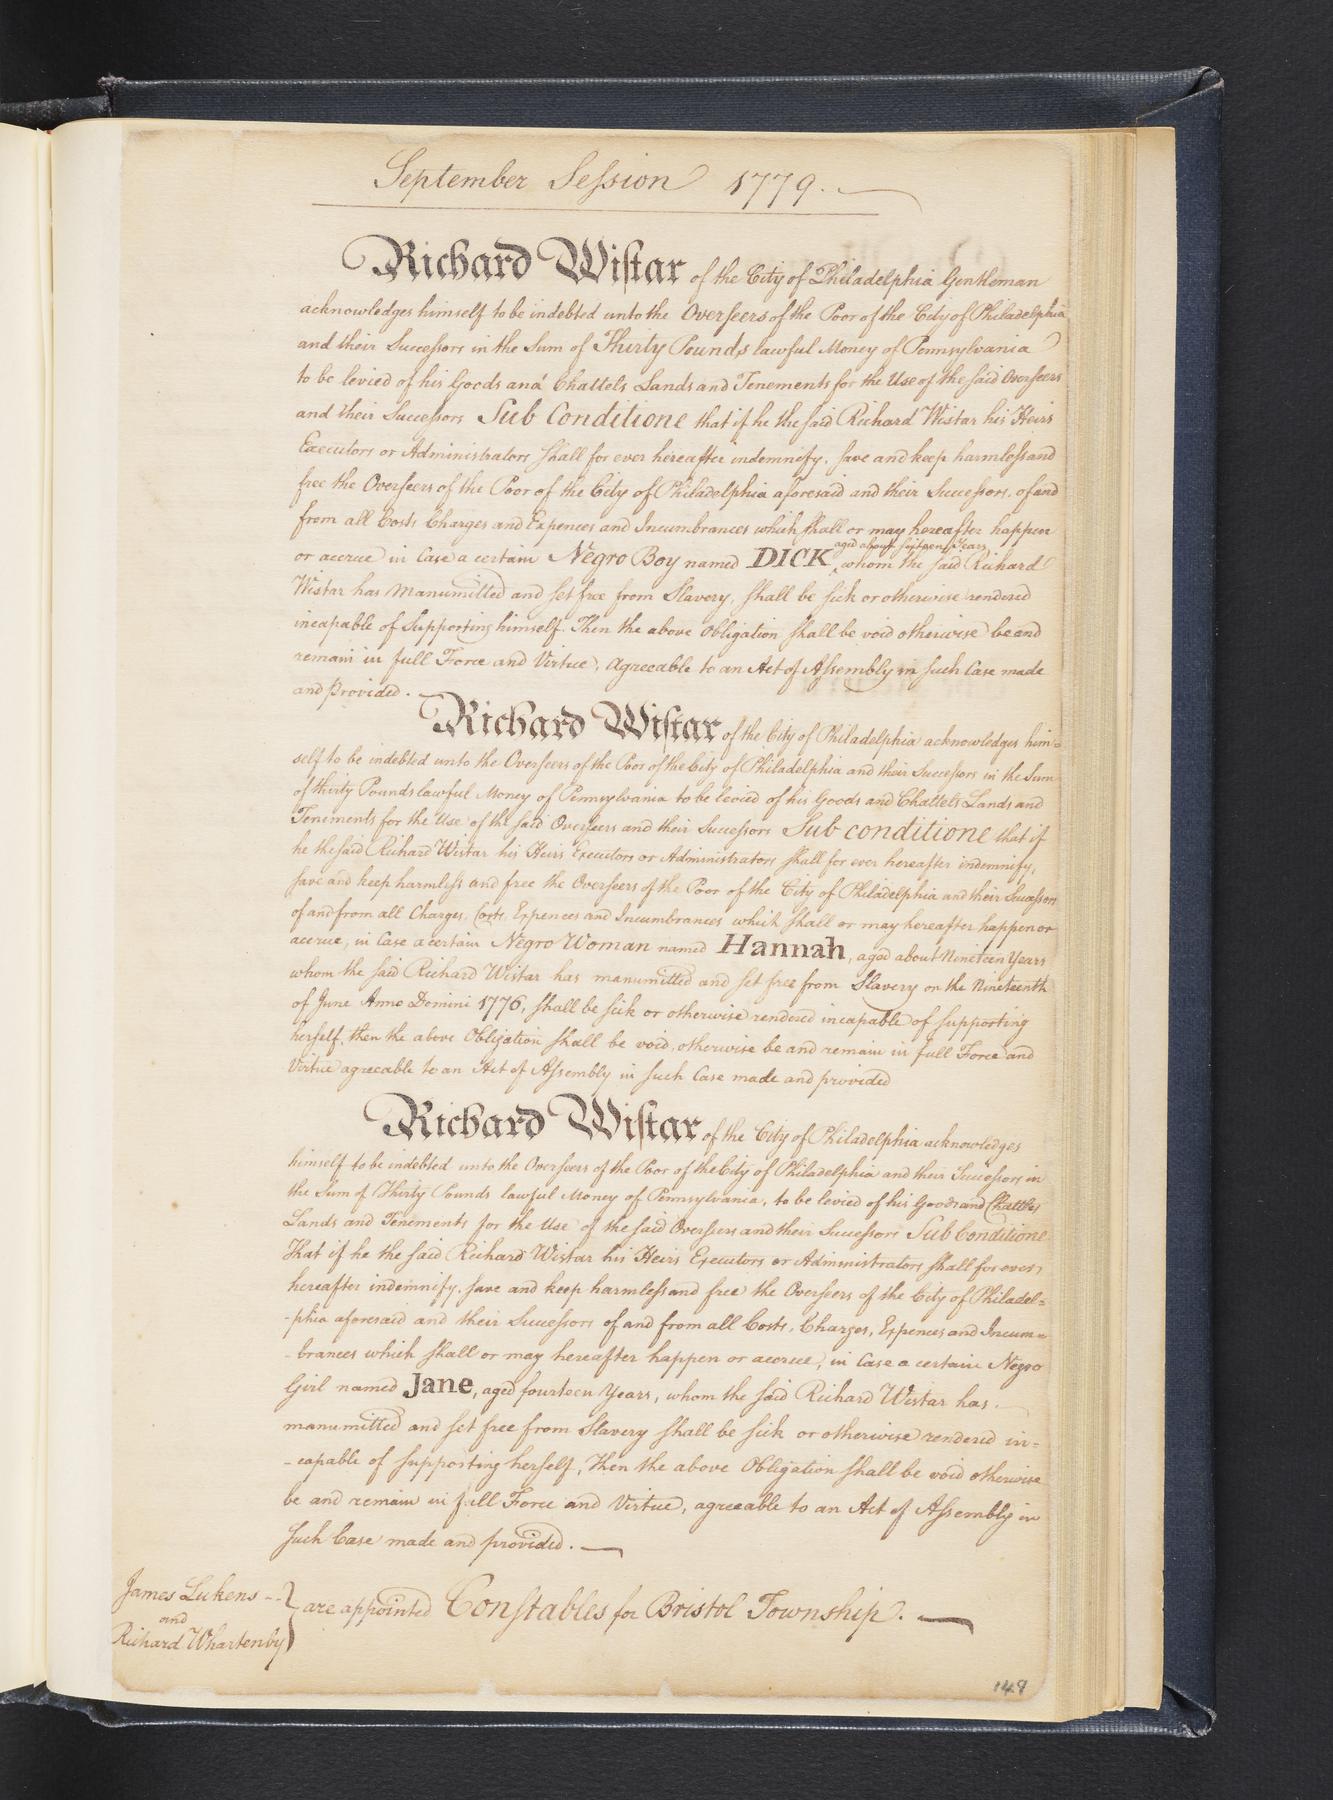 September Session 1779.
Richard Wistar of the City of Philadelphia Gentleman
acknowledges himself to be indebted unto the Overseers of the Poor of the City of Philadelphia
and their Successors in the Sum of Thirty Pounds lawful Money of Pennsylvania
to be levied of his Goods and Chattels Lands and Tenements for the Use of the said Overseers
and their Successors Sub Conditione that if he the said Richard Wistar his Heirs
Executors or Administrators shall for ever hereafter indemnify, save and keep harmless and
free the Overseers of the Poor of the City of Philadelphia aforesaid and their Successors, of and
from all Costs Charges and Expences and Incumbrances which shall or may hereafter happen
aged about sixteen Years
or accrue in Case a certain Negro Boy named DICK ‸ whom the said Richard
Wistar has Manumitted and set free from Slavery, shall be sick or otherwise rendered
incapable of Supporting himself. Then the above Obligation shall be void otherwise be and
remain in full Force and Virtue, agreeable to an Act of Assembly in such Case made
and provided.
Richard Wistar of the City of Philadelphia acknowledges him=
self to be indebted unto the Overseers of the Poor of the City of Philadelphia and their Successors in the Sum
of thirty Pounds lawful Money of Pennsylvania to be levied of his Goods and Chattels Lands and
Tenements for the Use of the said Overseers and their Successors Sub conditione that if
he the said Richard Wistar his Heirs Executors or Administrators shall for ever hereafter indemnify,
save and keep harmless and free the Overseers of the Poor of the City of Philadelphia and their Successors
of and from all Charges, Costs, Expences and Incumbrances which shall or may hereafter happen or
accrue, in Case a certain Negro Woman named Hannah, aged about Nineteen Years
whom the said Richard Wistar has manumitted and set free from Slavery on the Nineteenth
of June Anno Domini 1776, shall be sick or otherwise rendered incapable of supporting
herself, then the above Obligation shall be void, otherwise be and remain in full Force and
Virtue agreeable to an Act of Assembly in such Case made and provided
Richard Wistar of the City of Philadelphia acknowledges
himself to be indebted unto the Overseers of the Poor of the City of Philadelphia and their Successors in
the Sum of Thirty Pounds lawful Money of Pennsylvania, to be levied of his Goods and Chattles
Lands and Tenements for the Use of the said Overseers and their Successors Sub Conditione
That if he the said Richard Wistar his Heirs Executors or Administrators shall for ever
hereafter indemnify, save and keep harmless and free the Overseers of the City of Philadel=
-phia aforesaid and their Successors of and from all Costs, Charges, Expences and Incum=
-brances which shall or may hereafter happen or accrue, in Case a certain Negro
Girl named Jane, aged fourteen Years, whom the said Richard Wistar has
manumitted and set free from Slavery shall be sick or otherwise rendered in=
-capable of supporting herself, Then the above Obligation shall be void otherwise
be and remain in full Force and Virtue, agreeable to an Act of Assembly in
such Case made and provided.
James Lukens --
and
Richard Whartenby
are appointed Constables for Bristol Township.
148